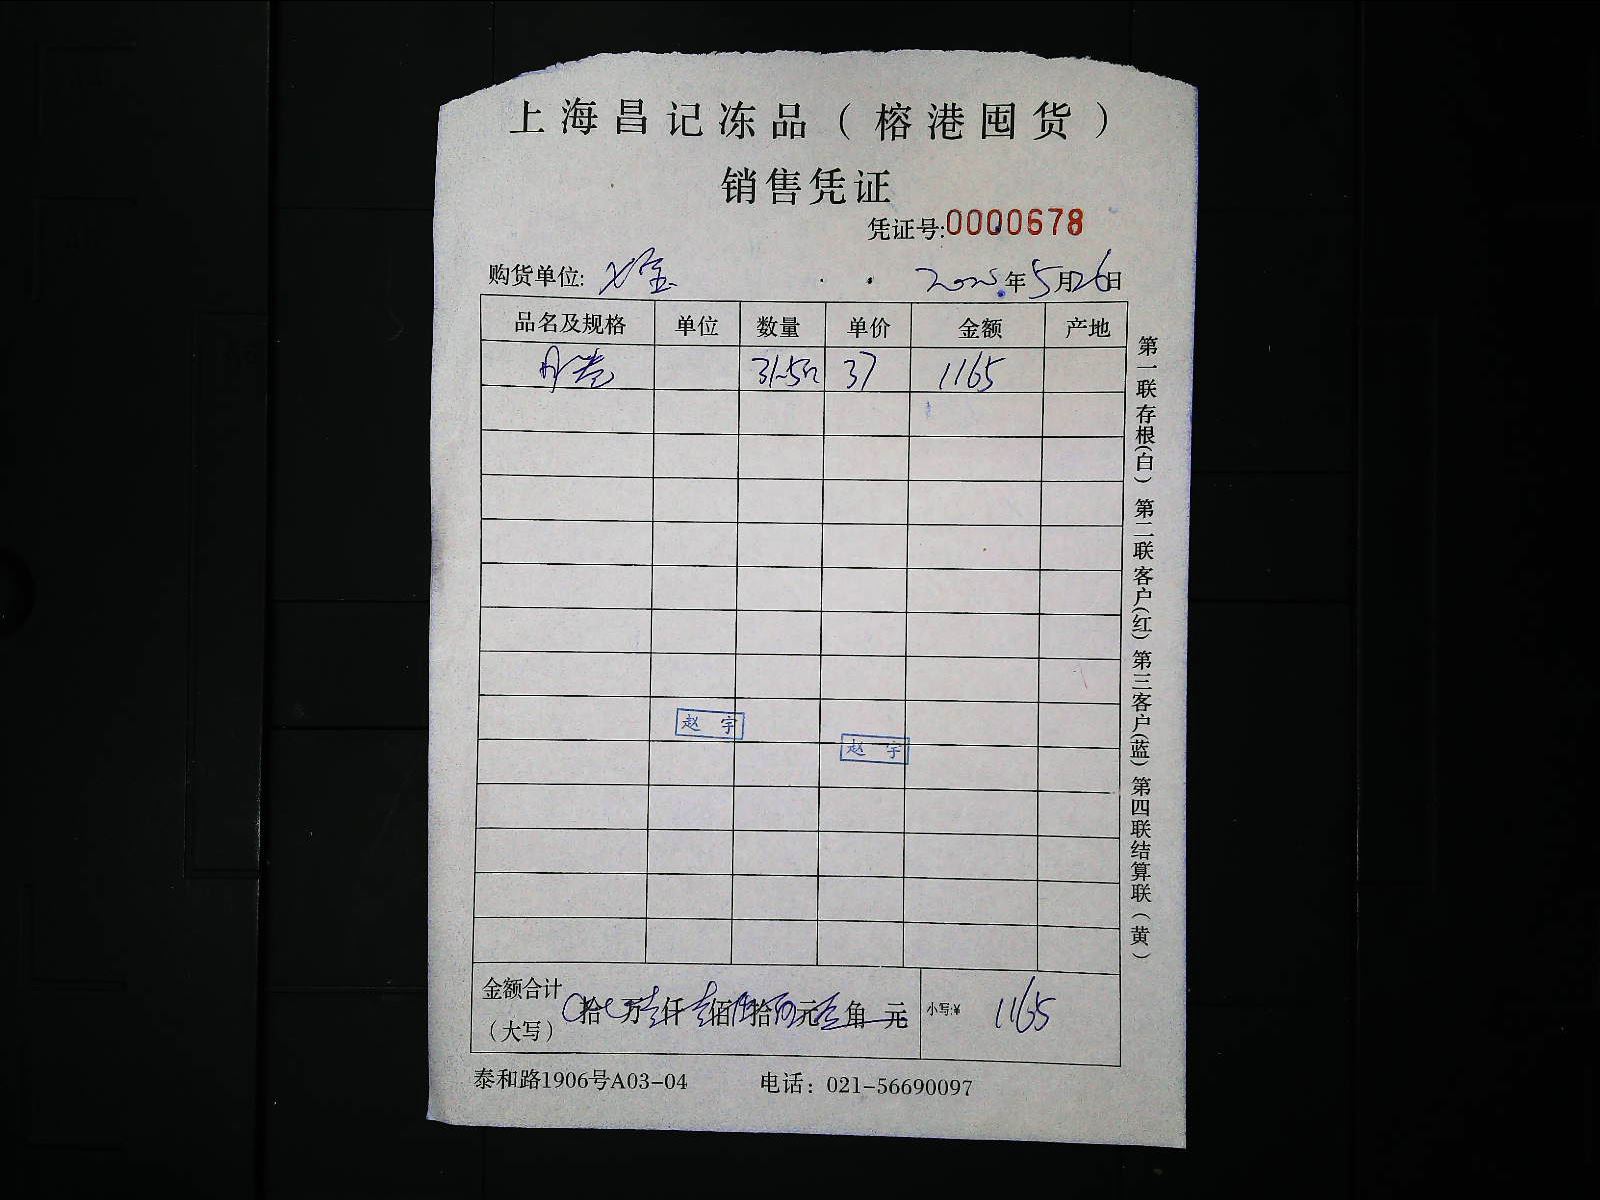 上海昌记冻品（榕港囤货）
销售凭证
凭证号:0000678
购货单位:
2025年5月26日
品名及规格 单位 数量 单价 金额 产地
37 1165
赵 宇
赵 宇
金额合计（大写） 拾 万壹仟壹佰 拾 元 角 元 小写:¥ 1165
泰和路1906号A03-04 电话：021-56690097
第一联存根(白) 第二联客户(红) 第三客户(蓝) 第四联结算联(黄)